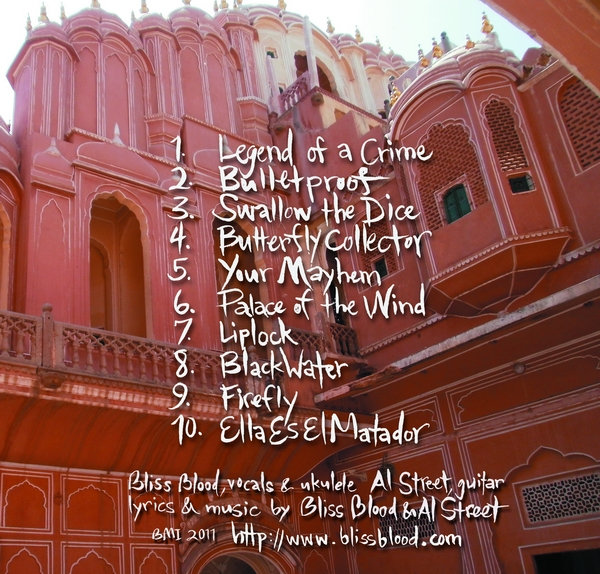 1. Legend of a Crime
2. Bulletproof
3. Swallow the Dice
4. Butterfly Collector
5. Your Mayhem
6. Palace of the Wind
7. Liplock
8. BlackWater
9. Firefly
10. Ella Es El Matador
Bliss Blood, vocals & ukulele Al Street, guitar
lyrics & music by Bliss Blood & Al Street
BMI 2011 http://www.blissblood.com